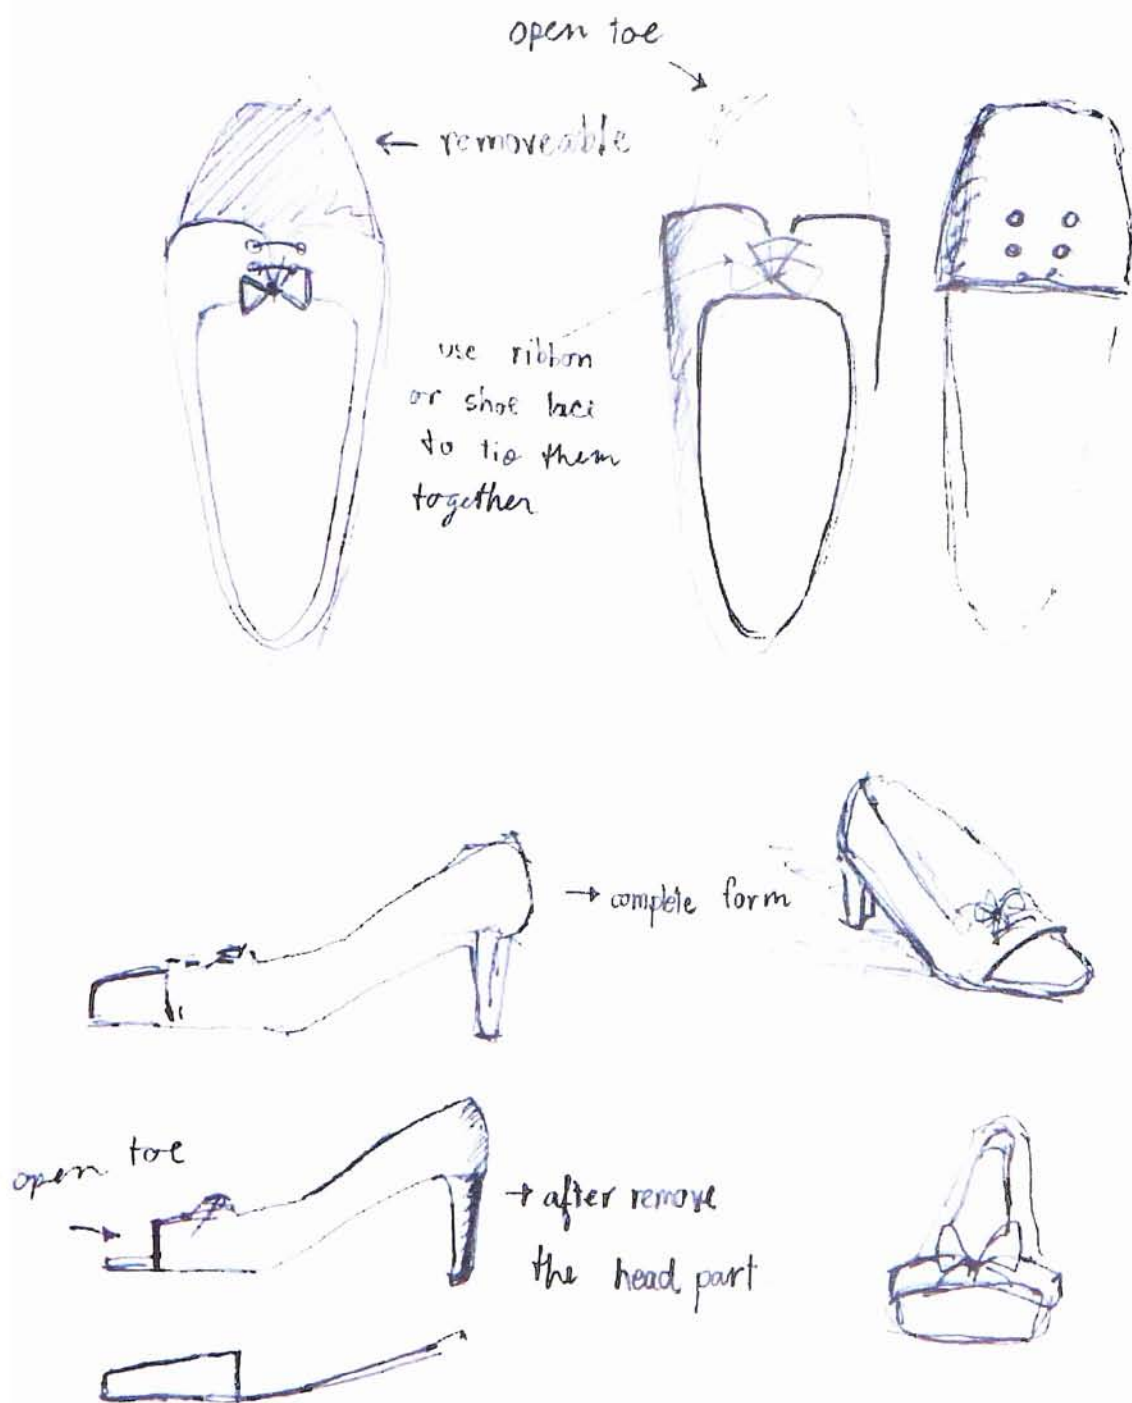 open toe
removeable
use ribbon
or shoe lace
to tie them
together
complete form
open toe
after remove
the head part